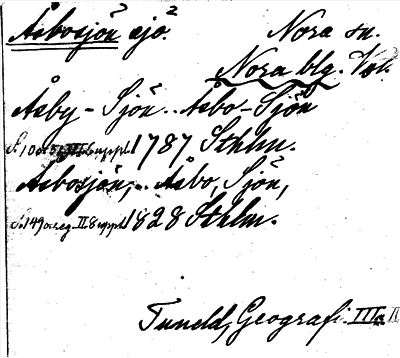 Åsbosjön sjö. Nora sn.
Nora blg. Vstl.
Åsby-Sjön.. Åsbo-Sjön
1787 Sthlm.
Åsbosjön,.. Åsbo, Sjön,
s. 149 o. reg. II 8 uppl. 1828 Sthlm.
Tuneld, Geografi. III